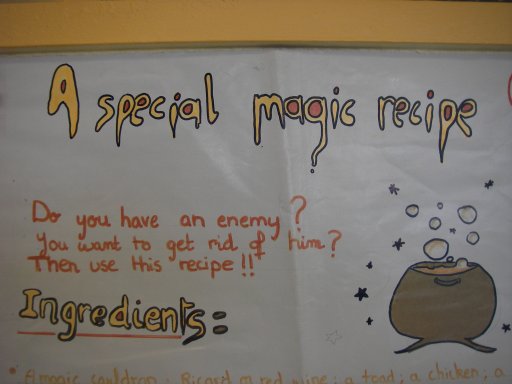 A special magic recipe
Do you have an enemy?
You want to get rid of him?
Then use this recipe!!
Ingredients:
• A magic cauldron; Ricard m red wine; a toad; a chicken; a